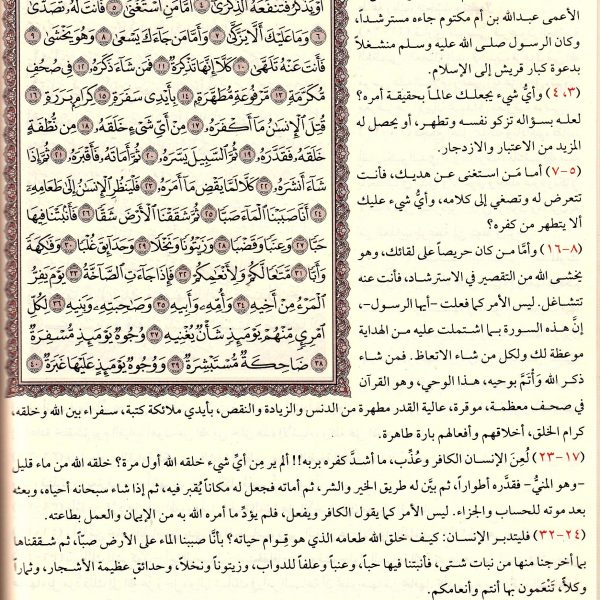 أَوْ يَذَّكَّرُ فَتَنفَعَهُ الذِّكْرَىٰ ٤ أَمَّا مَنِ اسْتَغْنَىٰ ٥ فَأَنتَ لَهُ تَصَدَّىٰ
٦ وَمَا عَلَيْكَ أَلَّا يَزَّكَّىٰ ٧ وَأَمَّا مَن جَاءَكَ يَسْعَىٰ ٨ وَهُوَ يَخْشَىٰ ٩
فَأَنتَ عَنْهُ تَلَهَّىٰ ١٠ كَلَّا إِنَّهَا تَذْكِرَةٌ ١١ فَمَن شَاءَ ذَكَرَهُ ١٢ فِي صُحُفٍ
مُّكَرَّمَةٍ ١٣ مَّرْفُوعَةٍ مُّطَهَّرَةٍ ١٤ بِأَيْدِي سَفَرَةٍ ١٥ كِرَامٍ بَرَرَةٍ ١٦
قُتِلَ الْإِنسَانُ مَا أَكْفَرَهُ ١٧ مِنْ أَيِّ شَيْءٍ خَلَقَهُ ١٨ مِن نُّطْفَةٍ
خَلَقَهُ فَقَدَّرَهُ ١٩ ثُمَّ السَّبِيلَ يَسَّرَهُ ٢٠ ثُمَّ أَمَاتَهُ فَأَقْبَرَهُ ٢١ ثُمَّ إِذَا
شَاءَ أَنشَرَهُ ٢٢ كَلَّا لَمَّا يَقْضِ مَا أَمَرَهُ ٢٣ فَلْيَنظُرِ الْإِنسَانُ إِلَىٰ طَعَامِهِ
٢٤ أَنَّا صَبَبْنَا الْمَاءَ صَبًّا ٢٥ ثُمَّ شَقَقْنَا الْأَرْضَ شَقًّا ٢٦ فَأَنبَتْنَا فِيهَا
حَبًّا ٢٧ وَعِنَبًا وَقَضْبًا ٢٨ وَزَيْتُونًا وَنَخْلًا ٢٩ وَحَدَائِقَ غُلْبًا ٣٠ وَفَاكِهَةً
وَأَبًّا ٣١ مَّتَاعًا لَّكُمْ وَلِأَنْعَامِكُمْ ٣٢ فَإِذَا جَاءَتِ الصَّاخَّةُ ٣٣ يَوْمَ يَفِرُّ
الْمَرْءُ مِنْ أَخِيهِ ٣٤ وَأُمِّهِ وَأَبِيهِ ٣٥ وَصَاحِبَتِهِ وَبَنِيهِ ٣٦ لِكُلِّ
امْرِئٍ مِّنْهُمْ يَوْمَئِذٍ شَأْنٌ يُغْنِيهِ ٣٧ وُجُوهٌ يَوْمَئِذٍ مُّسْفِرَةٌ
٣٨ ضَاحِكَةٌ مُّسْتَبْشِرَةٌ ٣٩ وَوُجُوهٌ يَوْمَئِذٍ عَلَيْهَا غَبَرَةٌ ٤٠
الأعمى عبدالله بن أم مكتوم جاءه مسترشداً،
وكان الرسول صلى الله عليه وسلم منشغلاً
بدعوة كبار قريش إلى الإسلام.
(٣، ٤) وأيُّ شيء يجعلك عالماً بحقيقة أمره؟
لعله بسؤاله تزكو نفسه وتطهر، أو يحصل له
المزيد من الاعتبار والازدجار.
(٥-٧) أما مَن استغنى عن هديك، فأنت
تتعرض له وتصغي إلى كلامه، وأيُّ شيء عليك
ألا يتطهر من كفره؟
(٨-١٦) وأمَّا من كان حريصاً على لقائك، وهو
يخشى الله من التقصير في الاسترشاد، فأنت عنه
تتشاغل. ليس الأمر كما فعلت -أيها الرسول-،
إنَّ هذه السورة بما اشتملت عليه من الهداية
موعظة لك ولكل من شاء الاتعاظ. فمن شاء
ذكر الله وَأْتَمَّ بوحيه، هذا الوحي، وهو القرآن
في صحف معظمة، موقرة، عالية القدر مطهرة من الدنس والزيادة والنقص، بأيدي ملائكة كتبة، سفراء بين الله وخلقه،
كرام الخلق، أخلاقهم وأفعالهم بارة طاهرة.
(١٧-٢٣) لُعِنَ الإنسان الكافر وعُذِّب، ما أشدَّ كفره بربه!! ألم ير مِن أيِّ شيء خلقه الله أول مرة؟ خلقه الله من ماء قليل
-وهو المنيُّ- فقدَّره أطواراً، ثم بيَّن له طريق الخير والشر، ثم أماته فجعل له مكاناً يُقبر فيه، ثم إذا شاء سبحانه أحياه، وبعثه
بعد موته للحساب والجزاء. ليس الأمر كما يقول الكافر ويفعل، فلم يؤدِّ ما أمره الله به من الإيمان والعمل بطاعته.
(٢٤-٣٢) فليتدبر الإنسان: كيف خلق الله طعامه الذي هو قوام حياته؟ بأنَّا صببنا الماء على الأرض صبّاً، ثم شققناها
بما أخرجنا منها من نبات شتى، فأنبتنا فيها حباً، وعنباً وعلفاً للدواب، وزيتوناً ونخلاً، وحدائق عظيمة الأشجار، وثماراً
وكلأ، تَنْعَمون بها أنتم وأنعامكم.